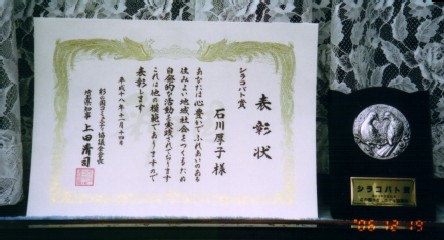 表彰状
シラコバト賞
石川厚子様
あなたは心豊かでふれあいのある
住みよい地域社会をつくるため
自発的な活動を実践されております
これは他の模範でありますそれで
表彰します
平成十八年十一月十四日
彩の国コミュニティ協議会会長
埼玉県知事 上田清司
シラコバト賞
'06 12 19